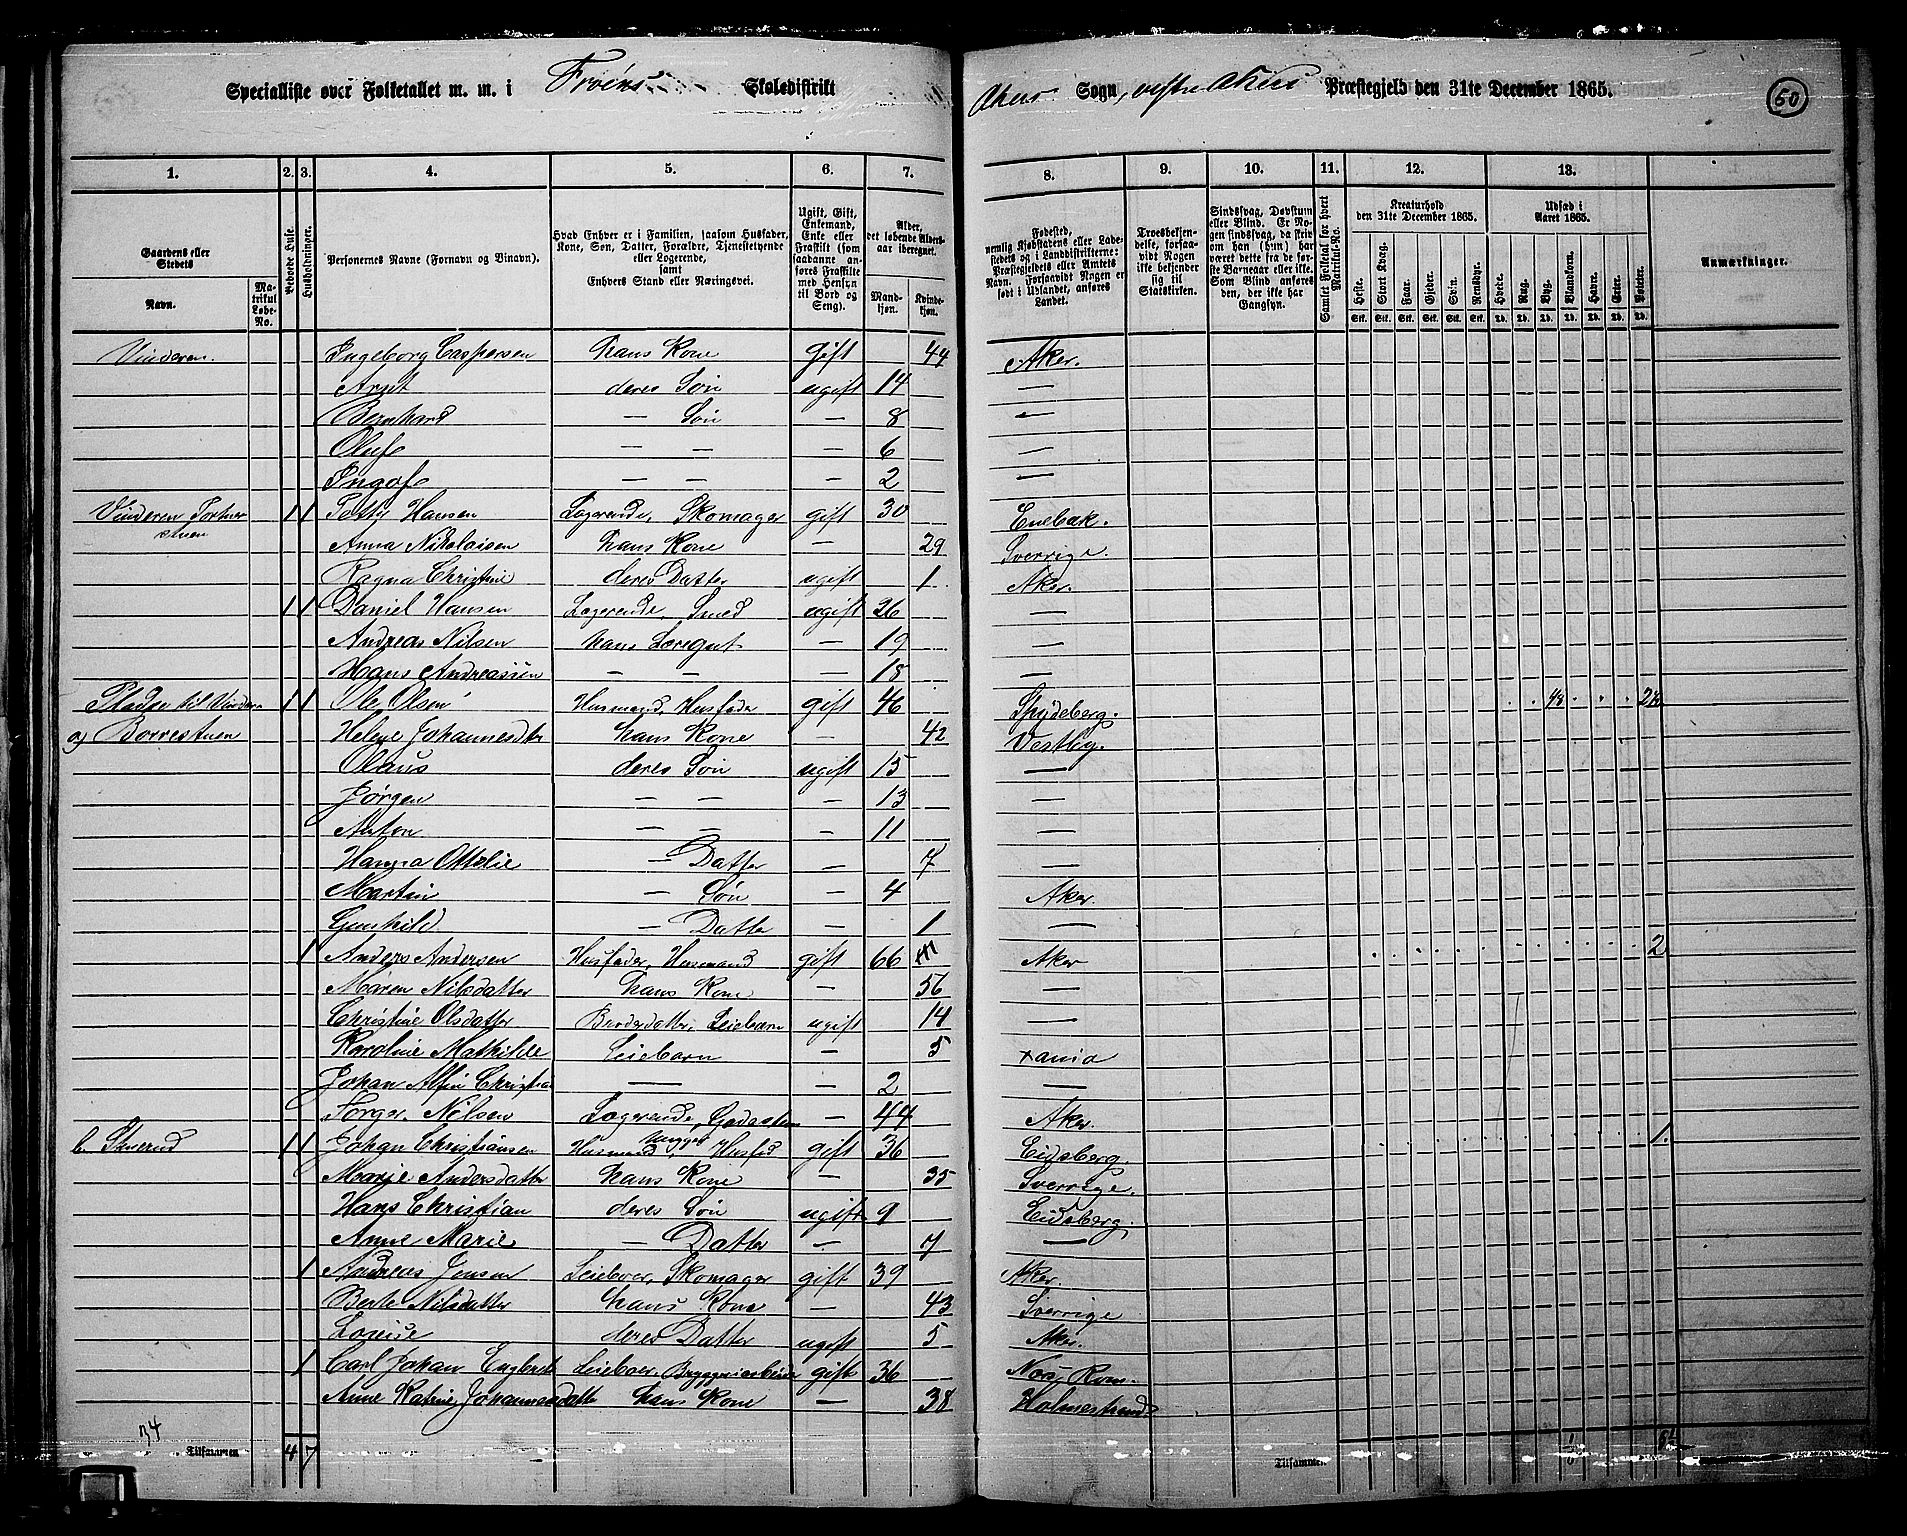 Specialliste over Folketallet m. m. i Frøens Skoledistrikt Akers Sogn, vestre Akers Præstegjeld den 31te December 1865. 50
1. 2. 3. 4. 5. 6. 7. 8. 9. 10. 11. 12. 13.
Gaardens eller Stedets Navn. Matrikul Løbe-No. Beboede Huse. Husholdninger. Personernes Navne (Fornavn og Vinavn). Hvad Enhver er i Familien, saasom Husfader, Kone, Søn, Datter, Forældre, Tjenestetyende eller Logerende, samt Enhvers Stand eller Næringsvei. Ugift, Gift, Enkemand, Enke eller Fraskilt (som saadanne anføres Fraskilte med Hensyn til Bord og Seng). Alder, det løbende Aldersaar iberegnet. Mandkjøn. Kvindekjøn.
Fødested, nemlig Kjøbstadens eller Ladestedets og i Landdistrikterne: Præstegjeldets eller Amtets Navn. Forsaavidt Nogen er født i Udlandet, anføres Landet. Troesbekjendelse, forsaavidt Nogen ikke bekjender sig til Statskirken. Sindssvag, Døvstum eller Blind. Er Nogen sindssvag, da skrives om han (hun) har været dette fra de første Barneaar eller ikke. Som Blind anføres den, der ikke har Gangsyn. Samlet Folketal for hvert Matrikul-No. Kreaturhold den 31te December 1865. Heste. Stort Kvæg. Faar. Gjeder. Svin. Rensdyr. Udsæd i Aaret 1865. Hvede. Rug. Byg. Blandkorn. Havre. Erter. Poteter. Anmærkninger.
Vinderen. Ingeborg Caspersen hans Kone gift 44 Aker.
deres Søn ugift 14 —
Bernhard — Søn — 8 —
Oluf — — — 6 —
Ingolf — — — 2 —
Vinderen Portnerstuen 1 1 Hansen Logerende, Skomager gift 30 Enebak.
Anna Nikolaisen hans Kone — 29 Sverrige.
Ragna Christine deres Datter ugift 1 Aker.
1 1 Daniel Hansen Logerende, Smed ugift 26 —
Andreas Nilsen hans Læregut — 19 —
Hans Andreassen — — — 18 —
Pladser til Vinderen 1 1 Ole Olsen Husmand, Husfader gift 46 Spydeberg. 1/8 2 1/2
a) Borrestuen Helene Johannesdtr hans Kone — 42 Vestby.
Olaus deres Søn ugift 15 —
Jørgen — — — 13 —
Anton — — — 11 —
Hanna Ottelie — Datter — 7 —
Martin — Søn — 4 Aker.
Gunhild — Datter — 1 —
1 Anders Andersen Husfader, Husmand gift 66 Aker 2
Maren Nilsdatter hans Kone — 56 —
Christine Olsdatter Leiebarn ugift 14 —
Karoline Mathilde Leiebarn — 5 Xania
Johan Alfin Christian — — 2 —
Torger Nilsen Logerende, — 44 Aker.
b. 1 1 Johan Christiansen Husmand, Husfad gift 36 Eidsberg. 1.
Marie Andersdatter hans Kone — 35 Sverrige.
Hans Christian deres Søn ugift 9 Eidsberg.
Anne Marie — Datter — 7 —
1 Andreas Jensen Leieboer, Skomager gift 39 Aker.
Berte Nilsdatter hans Kone — 43 Sverrige
Lovise deres Datter ugift 5 Aker.
1 Carl Johan Engbret Leieboer, Bryggeriarbeider gift 36 Næs, Rom.
Anne Katrine Johannesdatter hans Kone — 38 Holmestrand
34
Tilsammen 4 7 Tilsammen 1/8